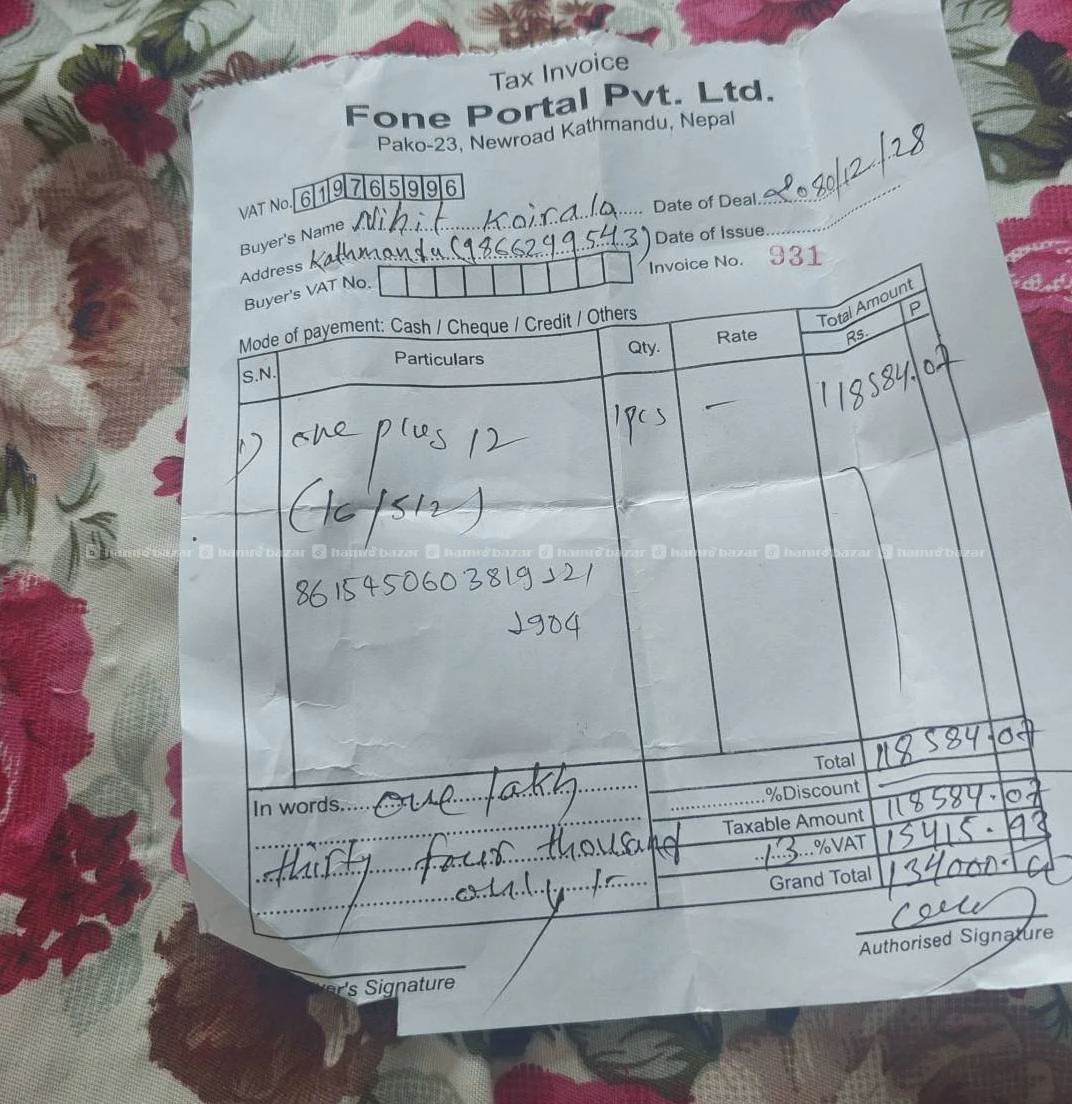 Tax Invoice
Fone Portal Pvt. Ltd.
Pako-23, Newroad Kathmandu, Nepal
VAT No. 619765996
Buyer's Name Nihit Koirala Date of Deal 2080/12/28
Address Kathmandu (9866299543) Date of Issue
Buyer's VAT No. Invoice No. 931
Mode of payement: Cash / Cheque / Credit / Others
S.N. Particulars Qty. Rate Total Amount
Rs. P
1) one plus 12 1pcs — 118584.07
(16/512)
hamro bazar hamro bazar hamro bazar hamro bazar hamro bazar hamro bazar hamro bazar hamro bazar
Total 118584.07
%Discount
In words one lakh Taxable Amount 118584.07
thirty four thousand 13 %VAT 15415.93
only Grand Total 134000.00
Authorised Signature
er's Signature